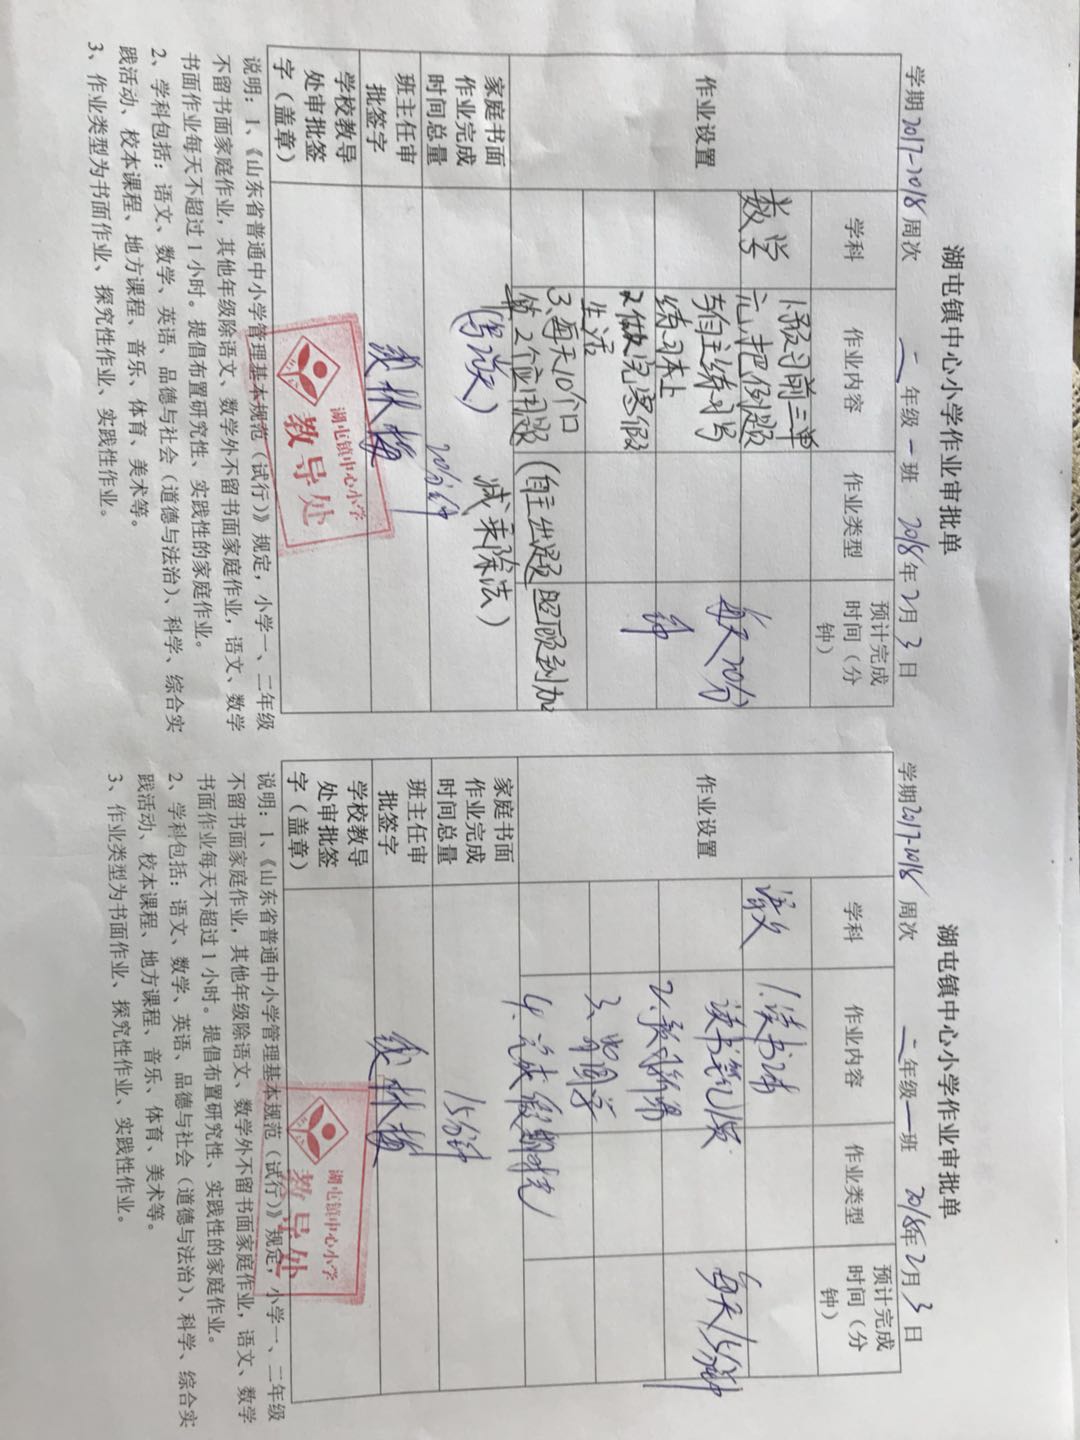 湖屯镇中心小学作业审批单
学期2017-2018周次 二年级一班 2018年2月3日
作业设置
学科
作业内容
作业类型
预计完成
时间（分
钟）
数学
1.预习前三单
元,把例题
与自主练习写
练习本上
2.做完寒假
生活
3.每天10个口
算2个应用题(自主出题照顾到加
减乘除法)
每天20分
钟
家庭书面
作业完成
时间总量
20分钟
班主任审
批签字
学校教导
处审批签
字（盖章）
湖屯镇中心小学
教导处
说明：1、《山东省普通中小学管理基本规范（试行）》规定，小学一、二年级
不留书面家庭作业，其他年级除语文、数学外不留书面家庭作业，语文、数学
书面作业每天不超过1小时。提倡布置研究性、实践性的家庭作业。
2、学科包括：语文、数学、英语、品德与社会（道德与法治）、科学、综合实
践活动、校本课程、地方课程、音乐、体育、美术等。
3、作业类型为书面作业、探究性作业、实践性作业。
湖屯镇中心小学作业审批单
学期2017-2018周次 二年级一班 2018年2月3日
作业设置
学科
作业内容
作业类型
预计完成
时间（分
钟）
语文
1.读书2本
读书笔记
2.
3.
4.完成假期
每天15分钟
家庭书面
作业完成
时间总量
15分钟
班主任审
批签字
学校教导
处审批签
字（盖章）
湖屯镇中心小学
教导处
说明：1、《山东省普通中小学管理基本规范（试行）》规定，小学一、二年级
不留书面家庭作业，其他年级除语文、数学外不留书面家庭作业，语文、数学
书面作业每天不超过1小时。提倡布置研究性、实践性的家庭作业。
2、学科包括：语文、数学、英语、品德与社会（道德与法治）、科学、综合实
践活动、校本课程、地方课程、音乐、体育、美术等。
3、作业类型为书面作业、探究性作业、实践性作业。